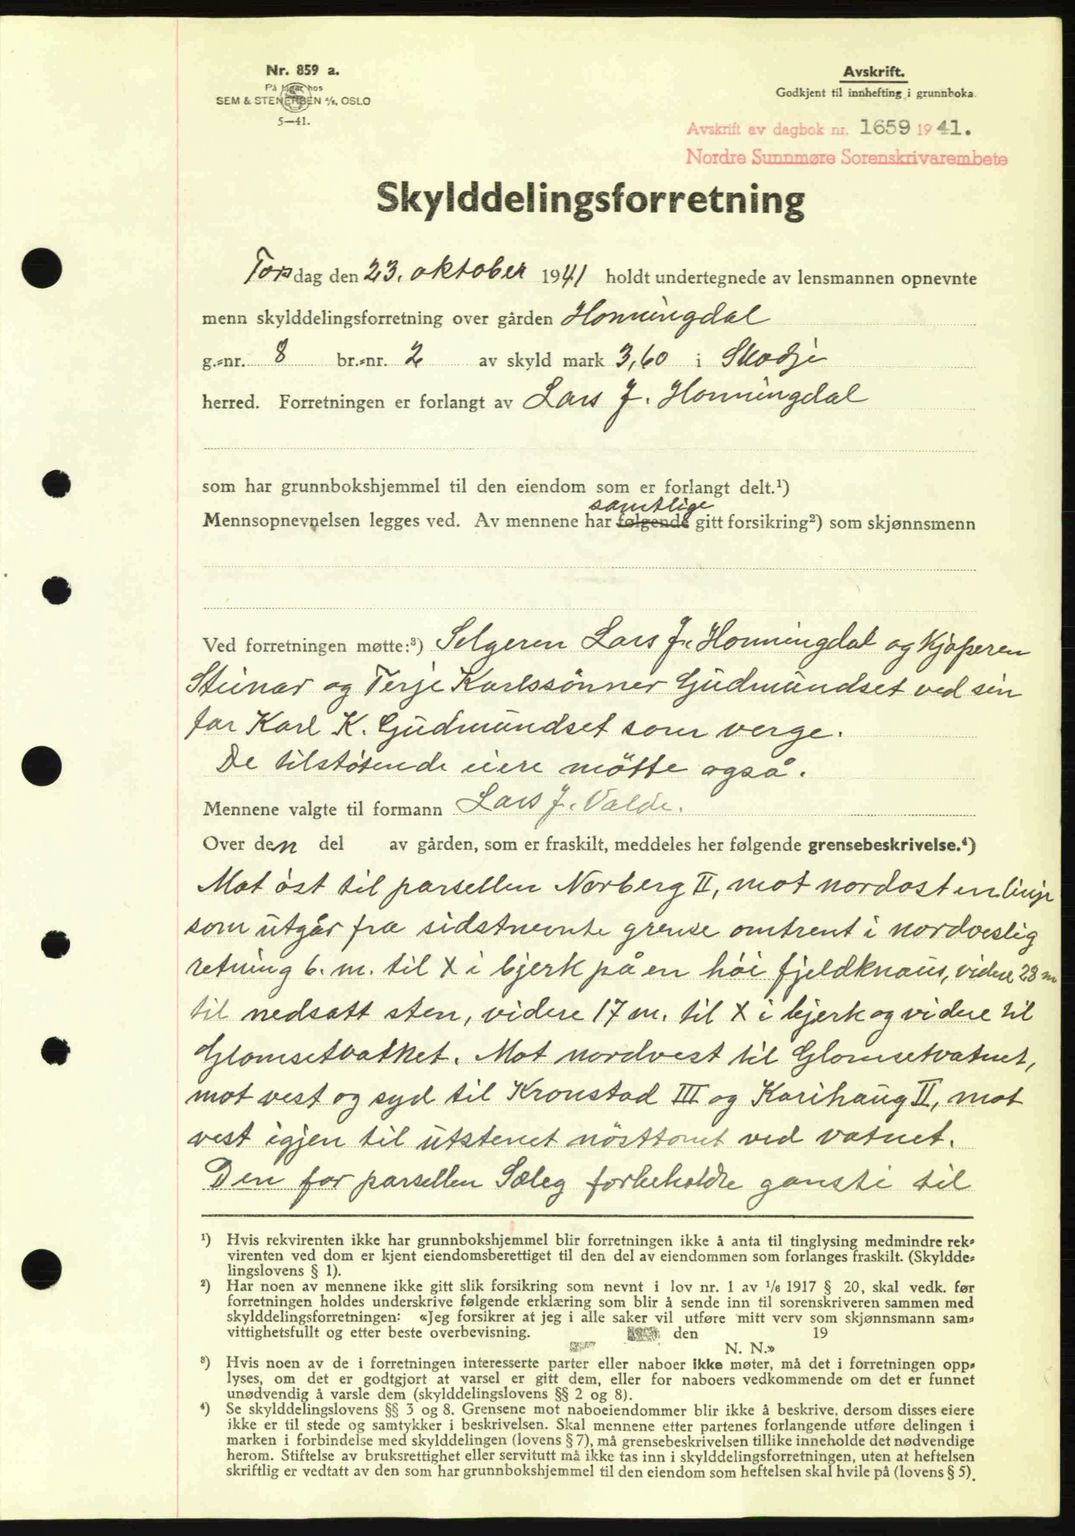 Nr. 859 a.
På lager hos
SEM & STENERSEN A/S, OSLO
5—41.
Avskrift.
Godkjent til innhefting i grunnboka.
Avskrift av dagbok nr. 1659 1941.
Nordre Sunnmøre Sorenskrivarembete
Skylddelingsforretning
Torsdag den 23. oktober 1941 holdt undertegnede av lensmannen opnevnte
menn skylddelingsforretning over gården Honningdal
g.-nr. 8 br.-nr. 2 av skyld mark 3,60 i Skodje
herred. Forretningen er forlangt av Lars J. Honningdal
som har grunnbokshjemmel til den eiendom som er forlangt delt.¹)
samtlige
Mennsopnevnelsen legges ved. Av mennene har følgende gitt forsikring²) som skjønnsmenn
Ved forretningen møtte:³) Selgeren Lars J. Honningdal og kjøperen
Steinar og Terje Karlssønner Gudmundset ved sin
far Karl K. Gudmundset som verge.
De tilstøtende eiere møtte også.
Mennene valgte til formann Lars J. Valde.
Over den del av gården, som er fraskilt, meddeles her følgende grensebeskrivelse.⁴)
Mot øst til parsellen Norberg II, mot nordost en linje
som utgår fra sidstnevnte grense omtrent i nordveslig
retning 6. m. til X i bjerk på en høi fjeldknaus, videre 23 m
til nedsatt sten, videre 17 m. til X i bjerk og videre til
Glomsetvatnet. Mot nordvest til Glomsetvatnet,
mot vest og syd til Kronstad III og Karihaug II, mot
vest igjen til utstenet nösttomt ved vatnet.
Den for parsellen Sæleg forbeholdte gangsti til
¹) Hvis rekvirenten ikke har grunnbokshjemmel blir forretningen ikke å anta til tinglysing medmindre rek-
virenten ved dom er kjent eiendomsberettiget til den del av eiendommen som forlanges fraskilt. (Skyldde-
lingslovens § 1).
²) Har noen av mennene ikke gitt slik forsikring som nevnt i lov nr. 1 av 1/6 1917 § 20, skal vedk. før
forretningen holdes underskrive følgende erklæring som blir å sende inn til sorenskriveren sammen med
skylddelingsforretningen: «Jeg forsikrer at jeg i alle saker vil utføre mitt verv som skjønnsmann sam-
vittighetsfullt og etter beste overbevisning. den 19
N. N.»
³) Hvis noen av de i forretningen interesserte parter eller naboer ikke møter, må det i forretningen opp-
lyses, om det er godtgjort at varsel er gitt dem, eller for naboers vedkommende om det er funnet
unødvendig å varsle dem (skylddelingslovens §§ 2 og 8).
⁴) Se skylddelingslovens §§ 3 og 8. Grensene mot naboeiendommer blir ikke å beskrive, dersom disses eiere
ikke er til stede og samtykker i beskrivelsen. Skal mennene etter partenes forlangende utføre delingen i
marken i forbindelse med skylddelingen (lovens § 7), må grensebeskrivelsen tillike inneholde det nødvendige
herom. Stiftelse av bruksrettighet eller servitutt må ikke tas inn i skylddelingsforretningen, uten at heftelsen
skriftlig er vedtatt av den som har grunnbokshjemmel til den eiendom som heftelsen skal hvile på (lovens § 5).